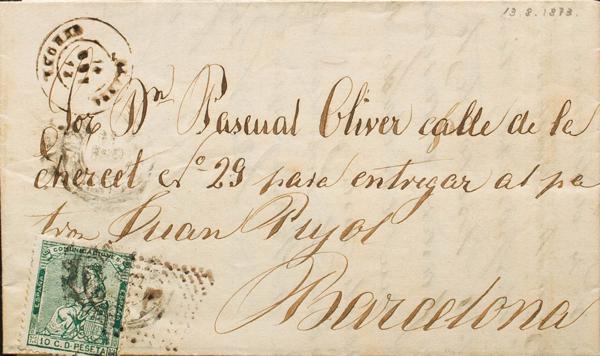 13.8.1873.
Sor Dn Pascual Oliver calle de la
mercet No 29 para entregar al pa
tron Juan Pujol
Barcelona
COMUNICACIONES
ESPAÑA
ESPAÑA
10 C. D PESETA